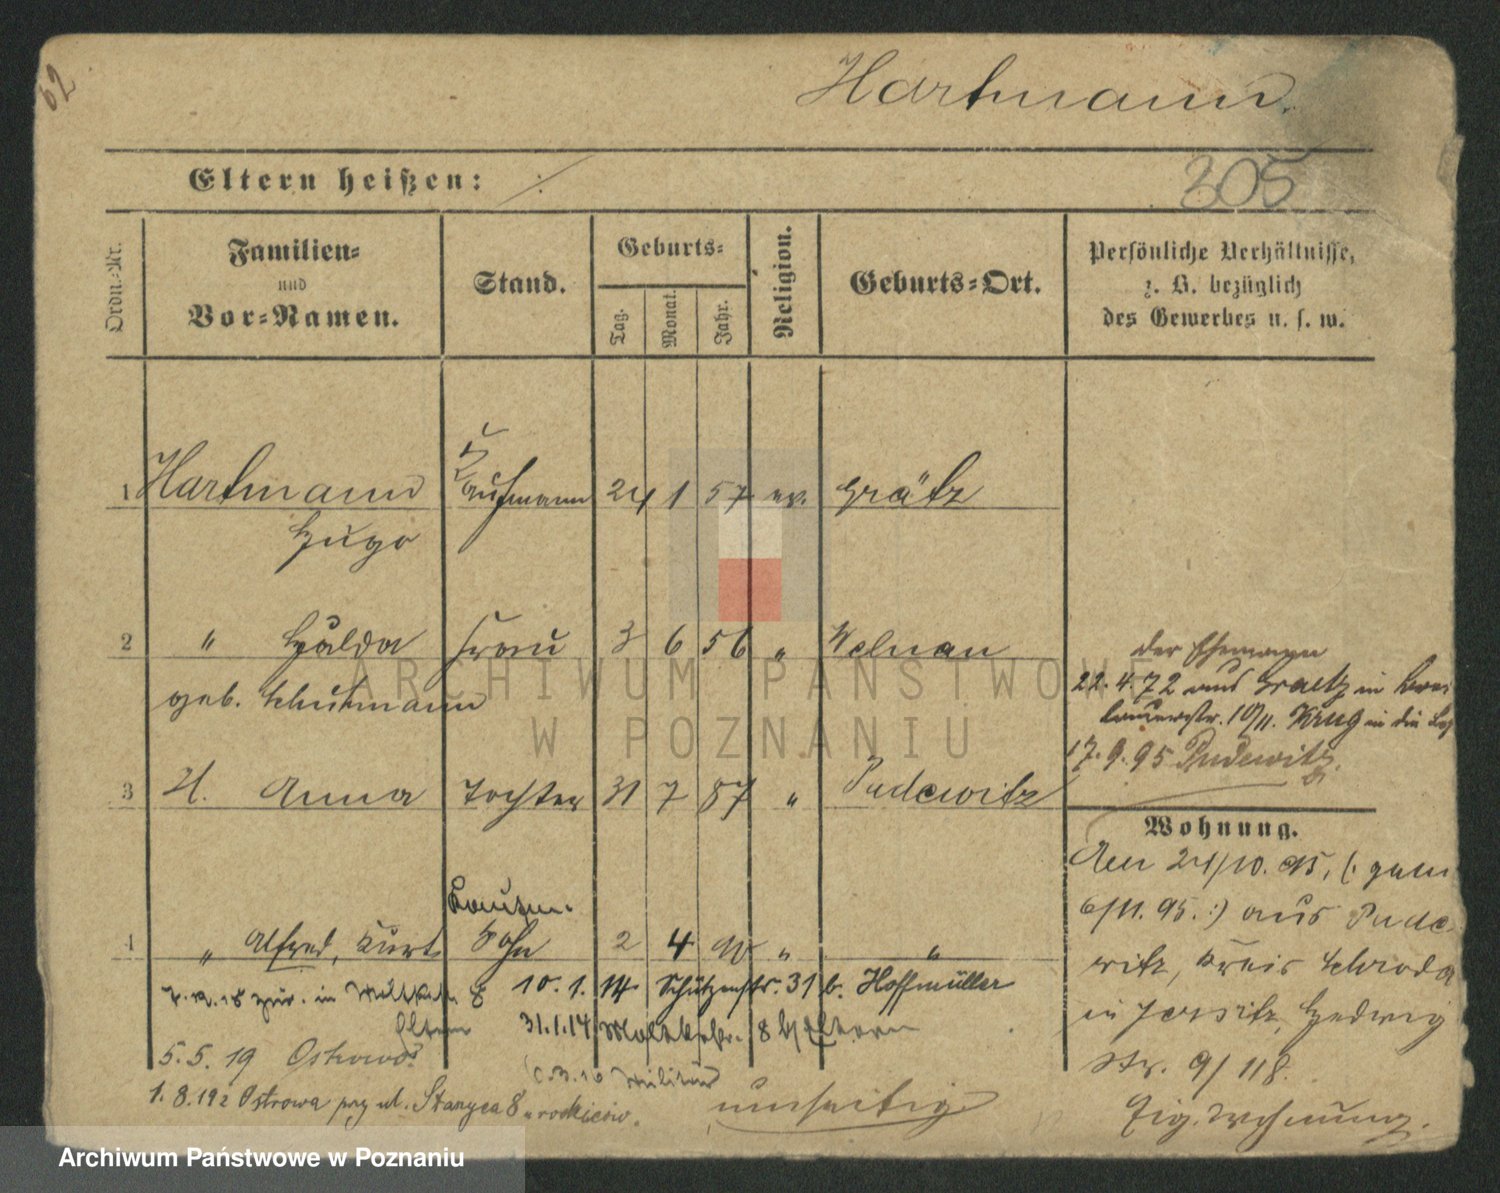 62
Hartmann.
Eltern heißen:
305
Ordn.-Nr.
Familien-
und
Vor-Namen.
Stand.
Geburts-
Tag.
Monat.
Jahr.
Religion.
Geburts-Ort.
Persönliche Verhältnisse,
z. B. bezüglich
des Gewerbes u. s. w.
1 Hartmann Kaufmann 24 1 57 ev. Grätz
Hugo
2 " Hulda Frau 3 6 56 " Welnau
geb. Schuhmann
3 H. Anna Tochter 31 7 87 " Pudewitz
Kaufm.
4 " Alfred, Kurt Sohn 2 4 90 " "
zur. in 8 10. 1. 14 Schützenstr. 31 b. Hoffmüller
Eltern 31.1.14 Moltkestr. 8 b/Eltern
5. 5. 19 Ostrowo
Militär
1. 8. 192 Ostrowa przy ul. Staszyca 8 u rodziców.
umseitig
der Ehemann
22. 4. 72 aus Graetz in
10/11. Krug in die
17. 9. 95 Pudewitz.
Wohnung.
Den 24/10. 95, (: gem
6/11. 95. :) aus Pude-
witz, Kreis Schroda
in Jersitz, Hedwig
Str. 9/118.
Eig. Wohnung.
ARCHIWUM PAŃSTWOWE
W POZNANIU
Archiwum Państwowe w Poznaniu